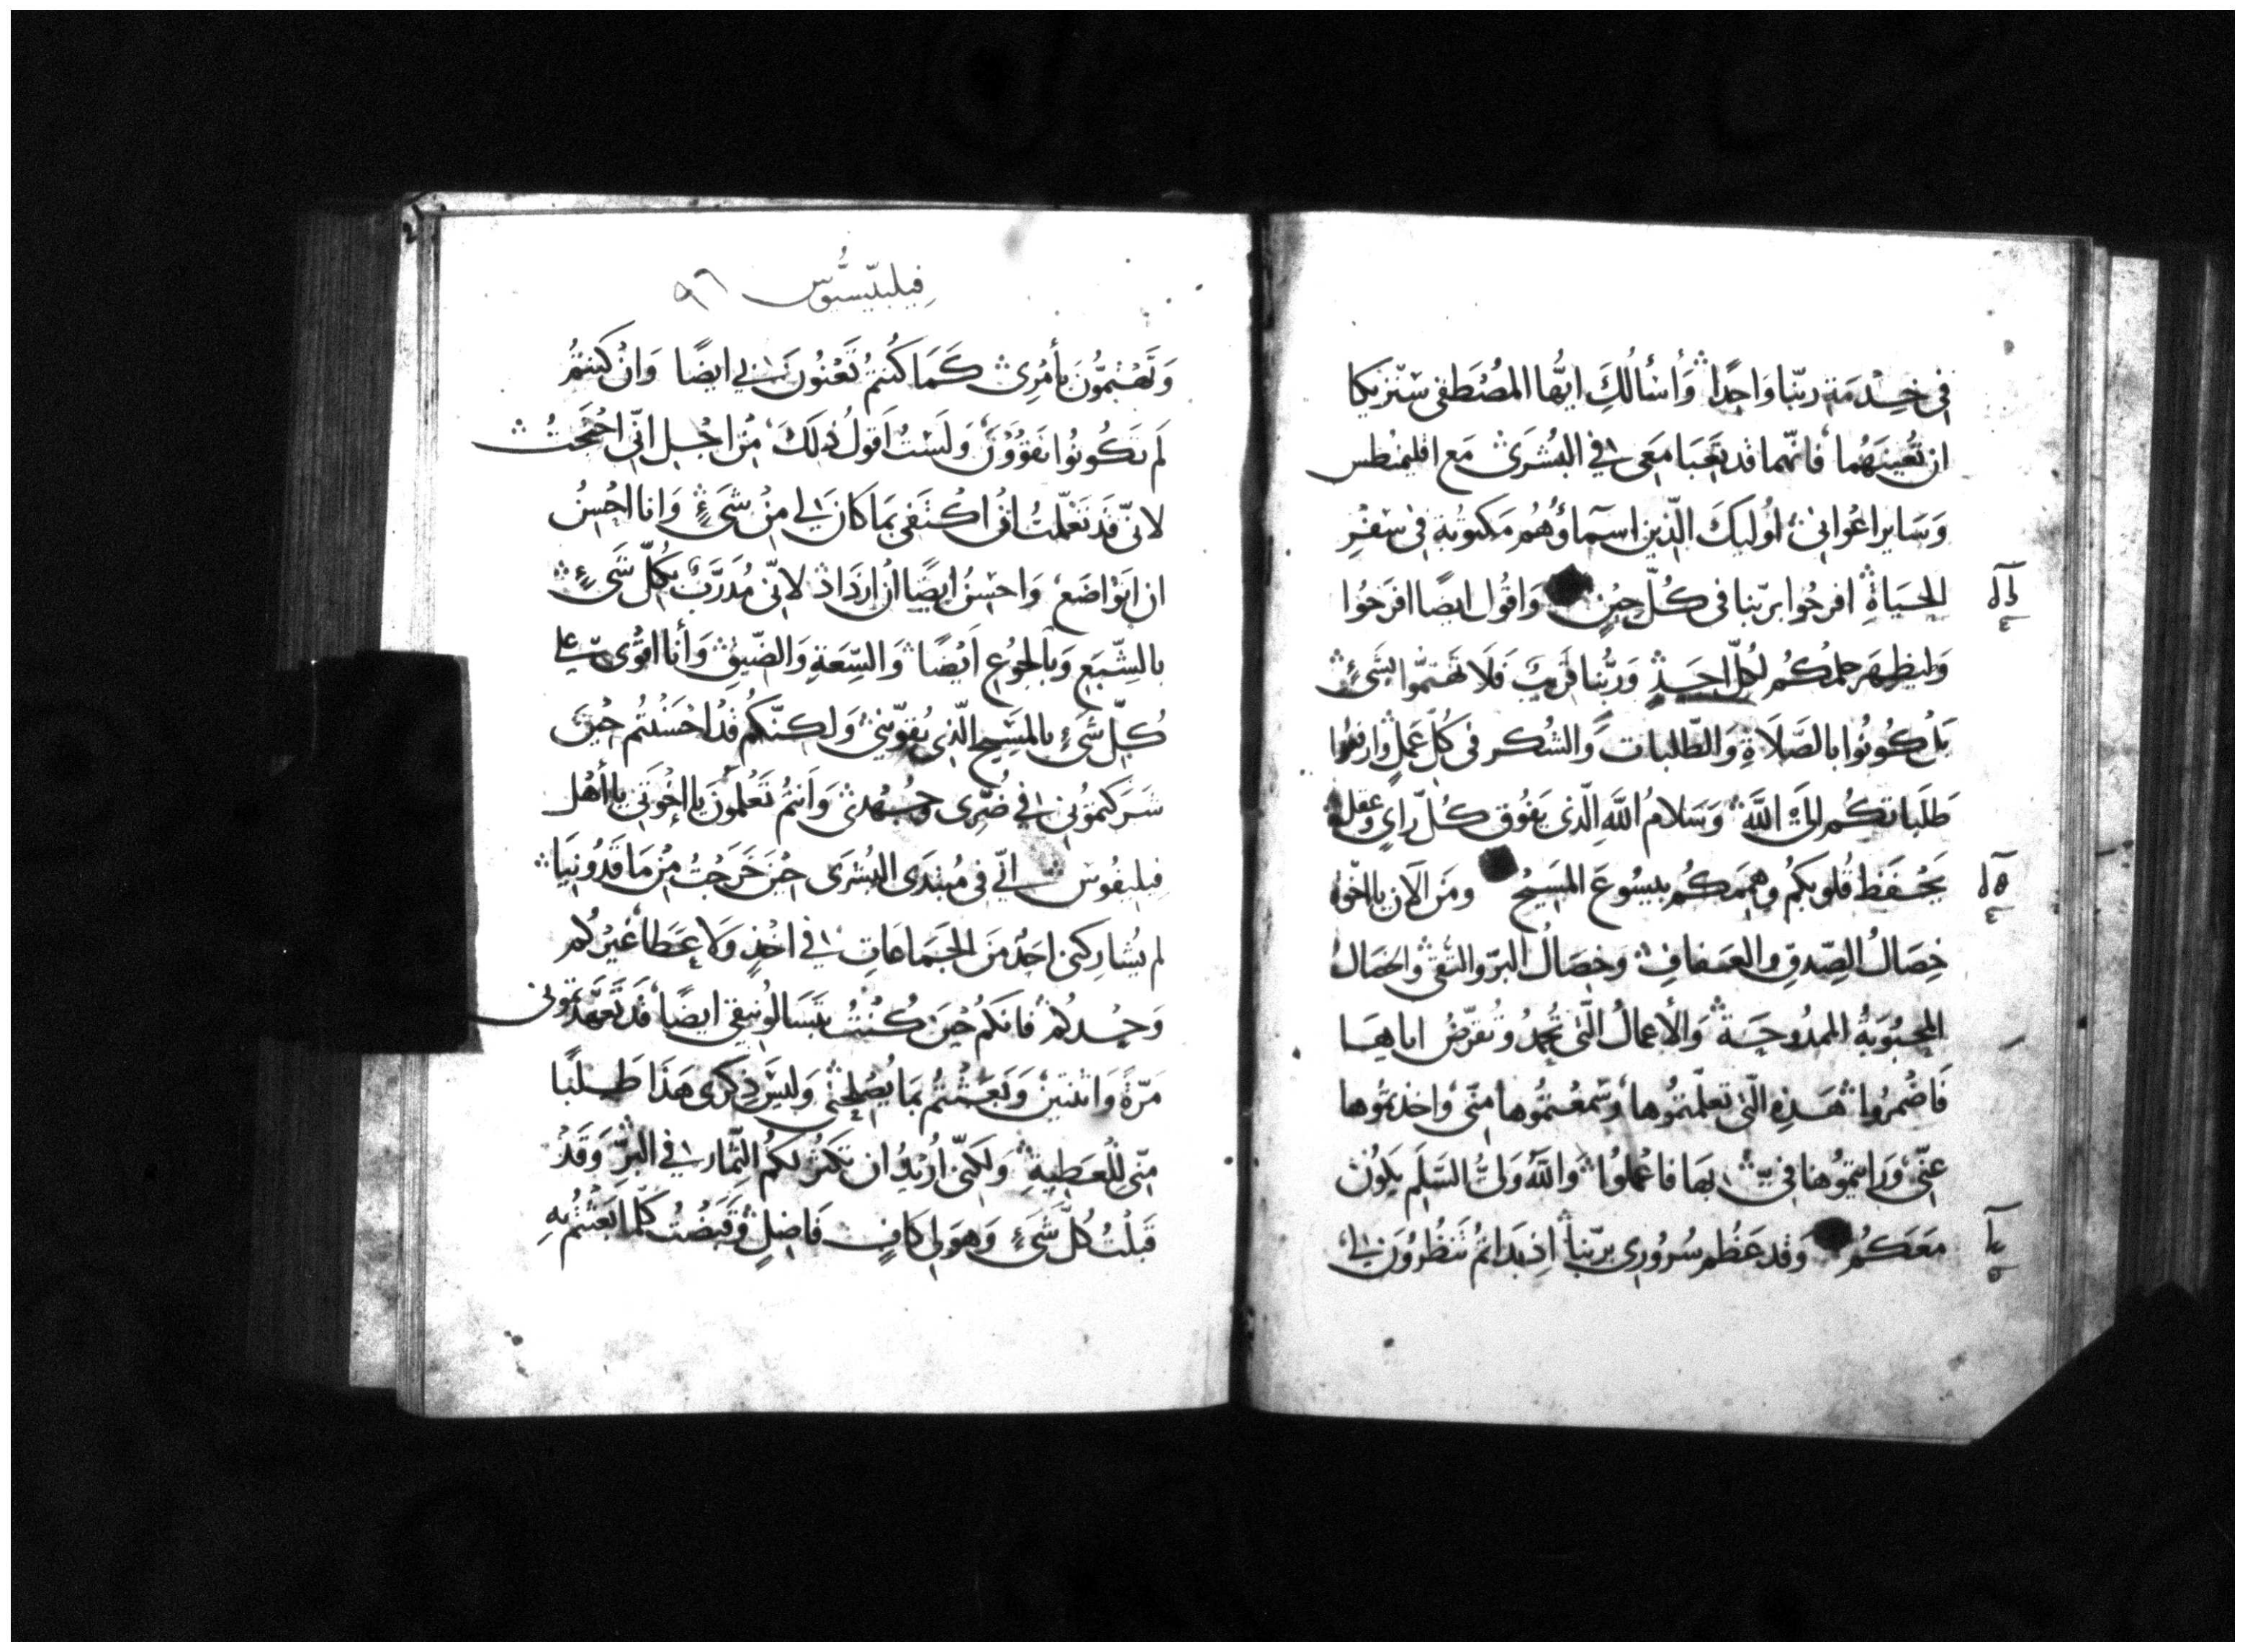 في خِدْمَة ربّنا وَاحِدًا وَأسْألُكَ ايُّها المُصْطَفى سنزنيكا
ان تُعِينَهُما فانّهما قد تَعِبَا مَعي في البُشرَى مَع اقليمنطس
وَسَاير اعْوَاني اوُليكَ الّذين اسمآؤُهُم مَكتوبَة في سِفْرِ
الحَيَاةِ افرحُوا بربّنا في كُلّ حِينٍ وَاقُول ايضًا افرَحُوا
وَليظهَر حلمكُم لكُلّ احَدٍ وَربُّنا قَريبٌ فَلَا تَهتمّوا بشَيءٍ
بَل كوُنوُا بالصَّلَاةِ وَالطّلبات وَالشكر في كلّ عَملٍ وارفَعُوا
طَلَباتكُم الىَ اللَّه وَسَلامُ اللَّهِ الّذي يَفُوق كُلّ رايٍ وعقل
يَحْفَظ قُلوبكُم وهِمَمكُم بيسُوعَ المَسِيح ومَن الآن يا اخوَه
خِصَالُ الصِّدقِ والعَفافِ وَخِصَالُ البرّ والتقى والخصَالُ
المحبُوبَةُ الممدُوحَة وَالأعمالُ الّتي تُحمدُ وتقرّضُ اياهَا
فَاضْمرُوا هَذِهِ الّتي تعلّمتمُوها وسَمعتمُوها منّي واخذتمُوها
عنّي وَرايتمُوها فيّ بهَا فاعْملوُا وَاللَّهُ وَليُّ السّلَم يَكوُن
معَكُم وَقد عَظُم سُرُوري بربّنا اِذ بَداتمُ تَنظُرُوَن لي
فيليبّسيوُّس ٩٦
وَتَهْتمُّونَ بأمْري كَمَا كُنتمُ تَعْنُونَ بي ايضًا وَان كنتمُ
لَم تَكُونوُا تقوَوُنَ وَلَسْتُ اَقولُ ذلكَ مِن اجْل انّي احتَجتُ
لانّي قَد تَعَلّمتُ ان اكتَفي بمَا كانَ لي مِن شَيءٍ وَانا احْسِنُ
ان اتوَاضَع وَاحْسِنُ ايضًا ان ازدَاد لانّي مُدَرَّبٌ بكُلّ شَيءٍ
بالشّبَعِ وَبالجُوعِ اَيْضًا وَالسِّعَةِ وَالضّيقِ وَأنا اقوَى علي
كُلّ شَيءٍ بالمَسِيحِ الّذي يُقوّيني وَلكنّكم قَد احْسَنْتُم حيْنَ
شَرَكتموُني في ضُرّي وجُهدي وَانتُم تَعْلَمُونَ يا اخْوَتي يا أهْل
فِيليفُوس انّي في مُبتَدَى البُشرَى حينَ خَرَجتُ مِن مَاقَدُونيَا
لم يُشارِكني احَدٌ مَن الجَمَاعَاتِ في اخْذٍ وَلا عَطاءٍ غَيرُكُم
وَحْدكُم فانكُم حيَن كُنتُ بتَسَالُونيقي ايضًا قَد تَعَهّدتموني
مَرّةً وَاثنتين وَبَعَثتُم بمَا يُصْلحُني وَليسَ ذِكرى هَذَا طَلَبًا
منّي للعَطيةِ وَلكنّي اُريدُ ان تكثرَ لكُم الثّمار في البِّر وَقَدْ
قَبلْتُ كُلّ شَيءٍ وَهوَ لي كافٍ فَاضِلٍ وَقَبَضْتُ كلّما بَعثتُم بهِ